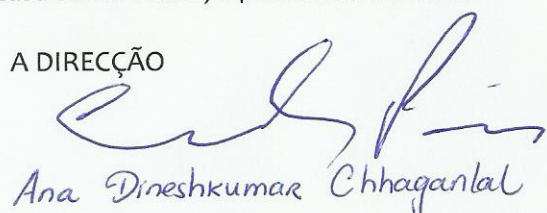 A DIRECÇÃO
Ana Dineshkumar Chhaganlal